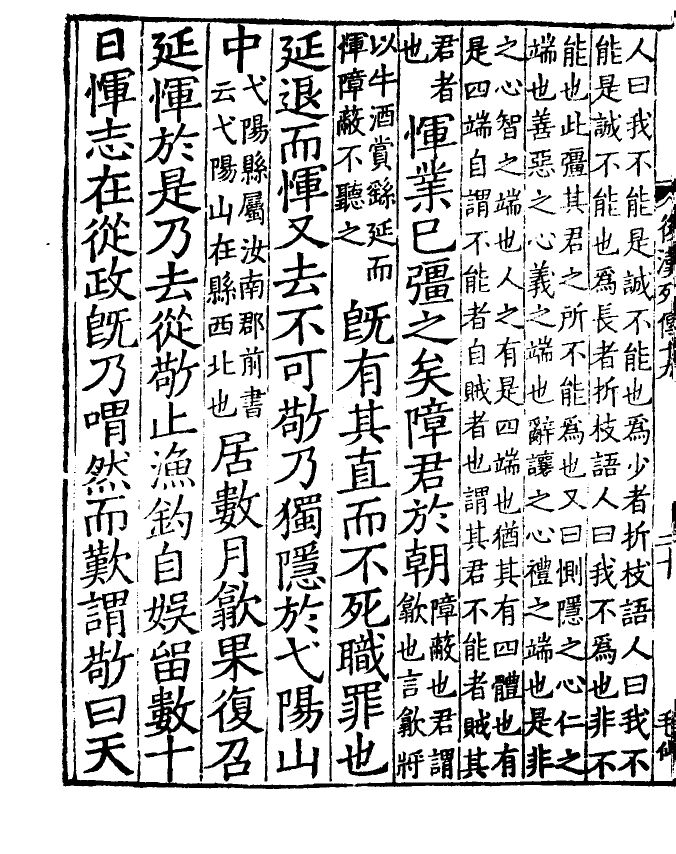 人曰我不能是誠不能也爲少者折枝語人曰我不
能是誠不能也爲長者折枝語人曰我不爲也非不
能也此彊其君之所不能爲也又曰惻隱之心仁之
端也善惡之心義之端也辭讓之心禮之端也是非
之心智之端也人之有是四端也猶其有四體也有
是四端自謂不能者自賊者也謂其君不能者賊其
君者
也
惲業巳彊之矣障君於朝
障蔽也君謂
歙也言歙將
以牛酒賞繇延而
惲障蔽不聽之
旣有其直而不死職罪也
延退而惲又去不可敬乃獨隱於弋陽山
中
弋陽縣屬汝南郡前書
云弋陽山在縣西北也
居數月歙果復召
延惲於是乃去從敬止漁釣自娛留數十
日惲志在從政旣乃喟然而歎謂敬曰天
後漢列傳十九
二十